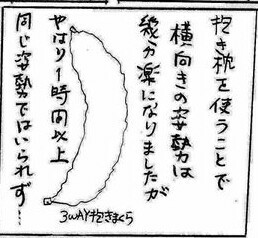 抱き枕を使うことで
横向きの姿勢は
幾分楽になりましたが
やはり1時間以上
同じ姿勢ではいられず…
3WAY抱きまくら